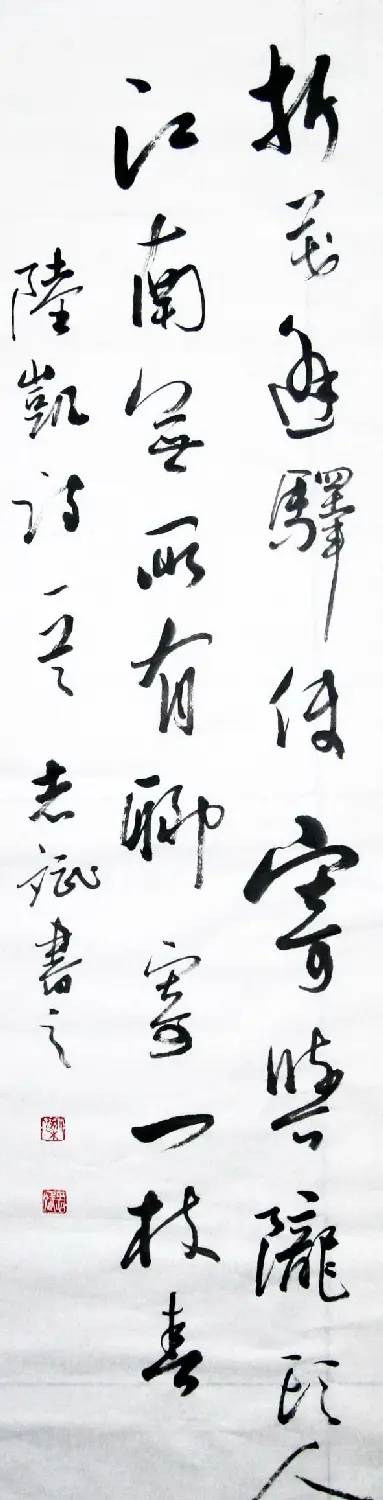 折花逢驛使寄與隴頭人
江南無所有聊寄一枝春
陸凱詩一首 志斌書之